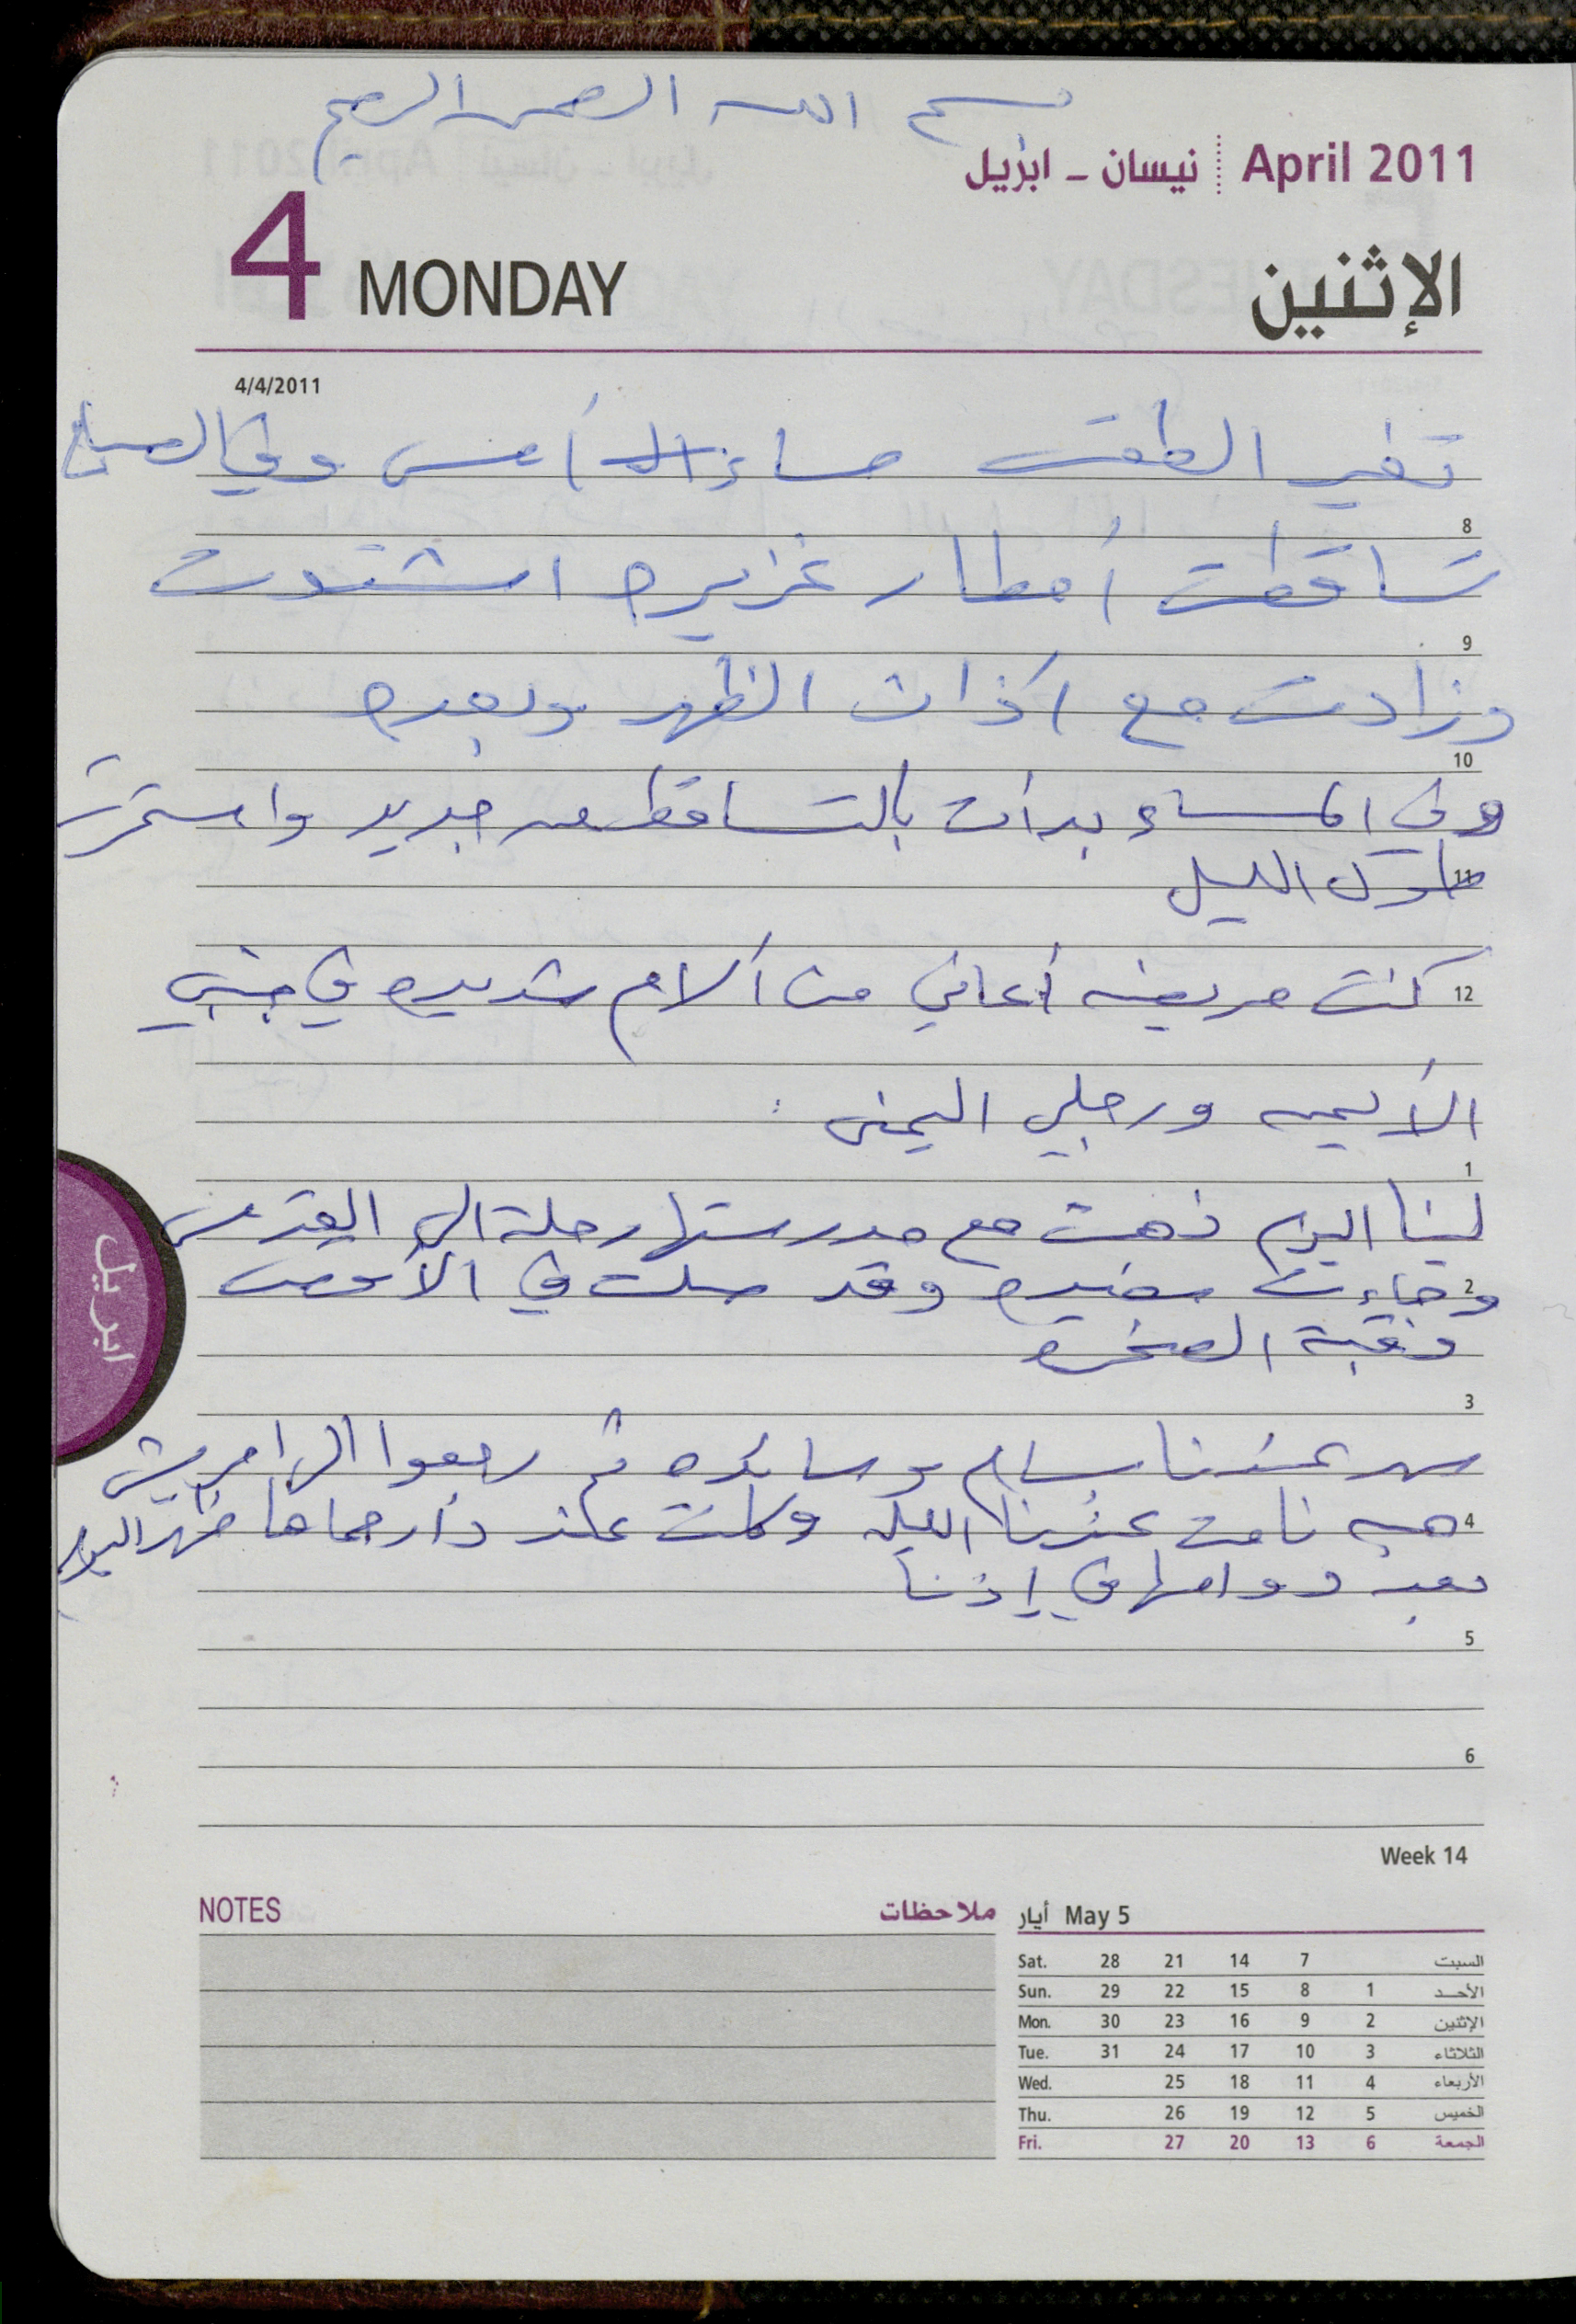 بسم الله الرحمن الرحيم
April 2011 نيسان - ابريل
4 MONDAY الإثنين
4/4/2011
تغير الطقس مساء أمس وفي الصباح
8
تساقطت أمطار غزيره اشتدت
9
وزادت مع آذان الظهر وبعده
10
وفي المساء بدأت بالتساقط من جديد واستمرت
11
طول الليل
12 كنت مريضه أعاني من آلام شديده في جنبي
الأيمن ورجلي اليمنى
1
لينا اليوم ذهبت مع مدرستها رحلة الى القدس
2 وجاءت سعيده وقد صلت في الأقصى
وقبة الصخره
3
سهر عندنا بسام وسائده ثم رجعوا الى امريش
4 هبه نامت عندنا الليله وكانت عند دار حماها ظهر اليوم
بعد دوامها في إذنا
5
6
ابريل
Week 14
NOTES ملاحظات
أيار May 5
Sat. 28 21 14 7 السبت
Sun. 29 22 15 8 1 الأحد
Mon. 30 23 16 9 2 الإثنين
Tue. 31 24 17 10 3 الثلاثاء
Wed. 25 18 11 4 الأربعاء
Thu. 26 19 12 5 الخميس
Fri. 27 20 13 6 الجمعة